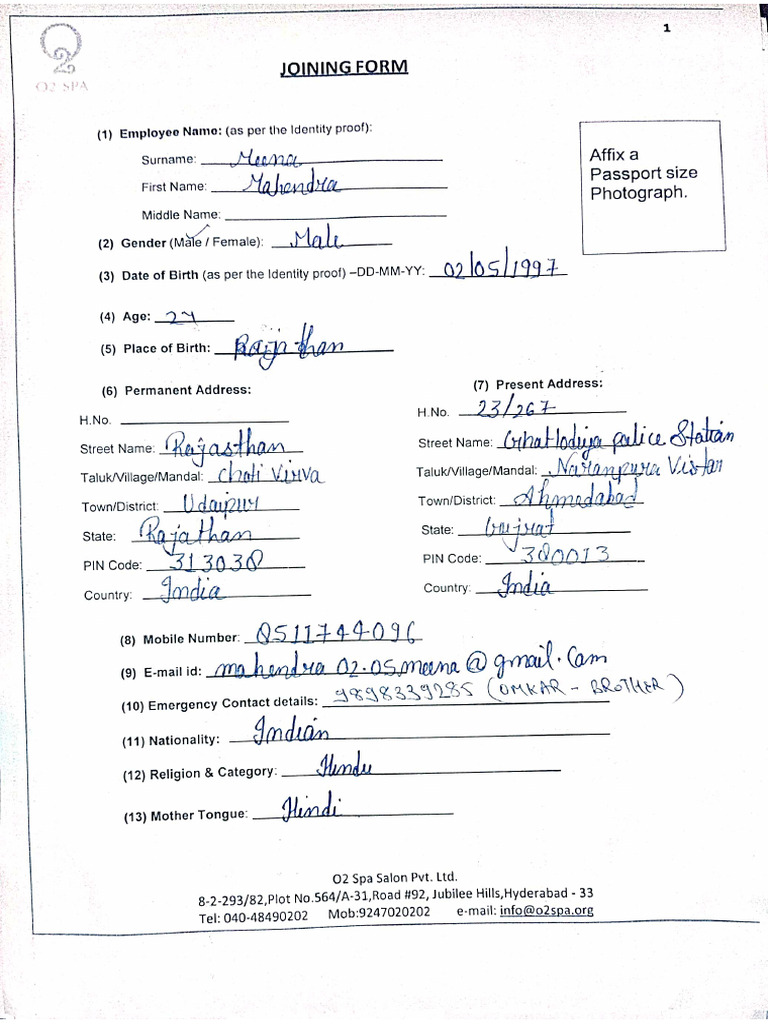 1
O2 SPA
JOINING FORM
(1) Employee Name: (as per the Identity proof):
Affix a
Passport size
Photograph.
Surname: Meena
First Name: Mahendra
Middle Name:
(2) Gender (Male / Female): Male
(3) Date of Birth (as per the Identity proof) –DD-MM-YY: 02/05/1997
(4) Age: 24
(5) Place of Birth: Rajathan
(6) Permanent Address:
H.No.
Street Name: Rajasthan
Taluk/Village/Mandal: Chati Virva
Town/District: Udaipur
State: Rajathan
PIN Code: 313038
Country: India
(7) Present Address:
H.No. 23/267
Street Name: Ghatlodija police Station
Taluk/Village/Mandal: Naranpura Vistar
Town/District: Ahmedabad
State: Gujrat
PIN Code: 380013
Country: India
(8) Mobile Number: 8511744096
(9) E-mail id: mahendra02.05.meena@gmail.Com
(10) Emergency Contact details: 9898339285 (OMKAR - BROTHER)
(11) Nationality: Indian
(12) Religion & Category: Hindu
(13) Mother Tongue: Hindi
O2 Spa Salon Pvt. Ltd.
8-2-293/82,Plot No.564/A-31,Road #92, Jubilee Hills,Hyderabad - 33
Tel: 040-48490202 Mob:9247020202 e-mail: info@o2spa.org